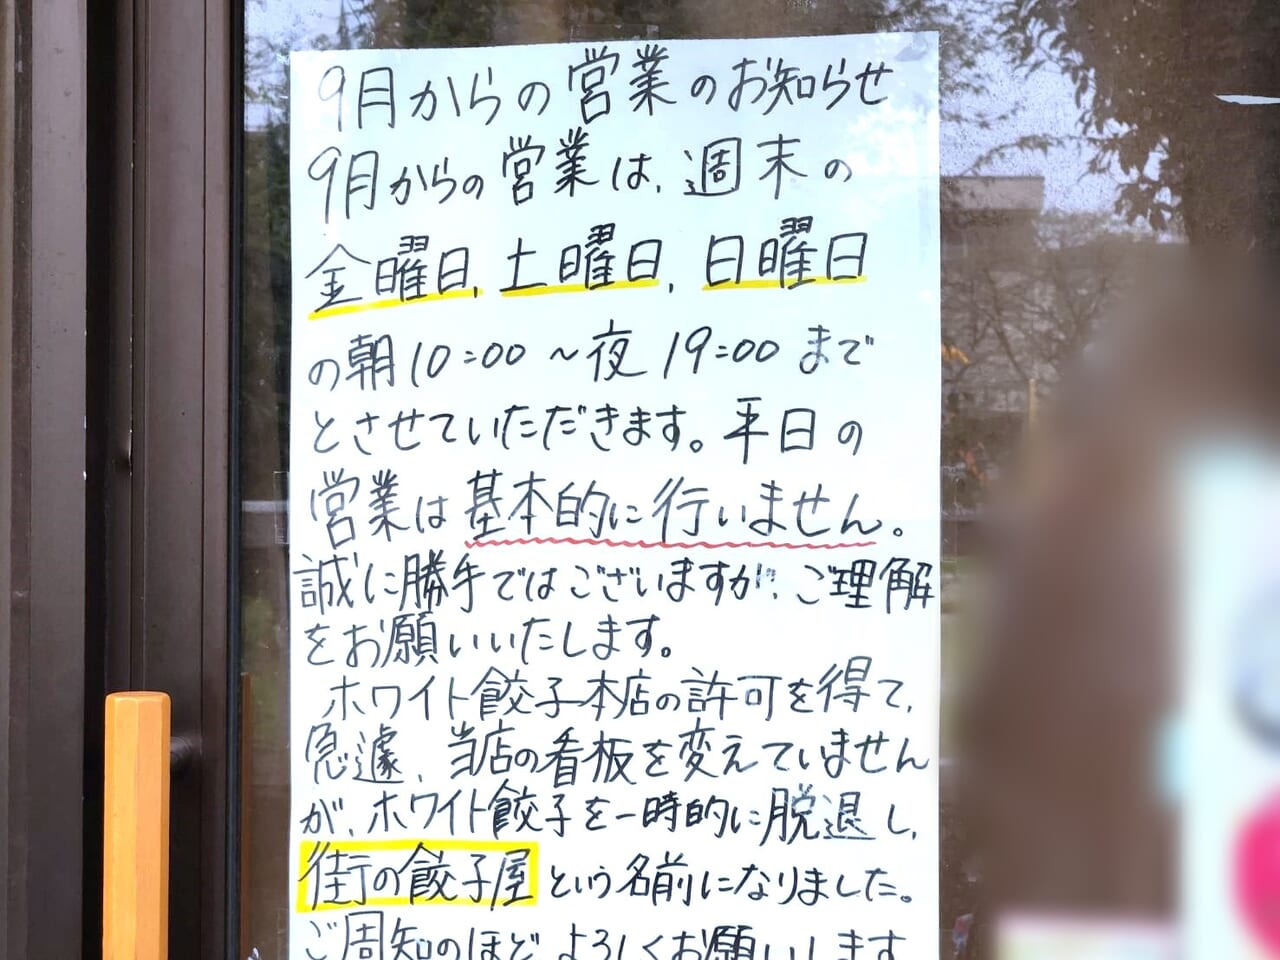 9月からの営業のお知らせ
9月からの営業は、週末の
金曜日、土曜日、日曜日
の朝10:00～夜19:00まで
とさせていただきます。平日の
営業は基本的に行いません。
誠に勝手ではございますが、ご理解
をお願いいたします。
ホワイト餃子本店の許可を得て、
急遽、当店の看板を変えていません
が、ホワイト餃子を一時的に脱退し、
街の餃子屋という名前になりました。
ご周知のほどよろしくお願いします